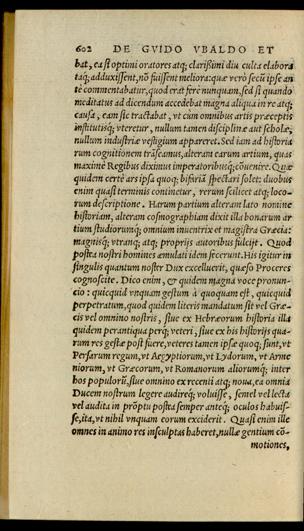 602 DE GVIDO VBALDO ET
bat, ea si optimi oratores atq; clarißimi diu culta elabora
taq; adduxissent, nō fuissent meliora: quæ verò secū ipse an
tè commentabatur, quod erat ferè nunquam, sed si quando
meditatus ad dicendum accedebat magna aliqua in re atq;
causa, eam sic tractabat, vt cùm omnibus artis præceptis
institutisq; vteretur, nullum tamen disciplinæ aut scholæ,
nullum industriæ vestigium appareret. Sed iam ad historia
rum cognitionem trāseamus, alteram earum artium, quas
maximè Regibus diximus imperatoribusq; cōuenire. Quæ
quidem certè ars ipsa quoq; bifariā spectari solet: duobus
enim quasi terminis continetur, rerum scilicet atq; loco-
rum descriptione. Harum partium alteram lato nomine
historiam, alteram cosmographiam dixit illa bonarum ar
tium studiorumq; omnium inuentrix et magistra Græcia:
magnisq; vtranq; atq; proprijs autoribus fulcijt. Quod
postea nostri homines æmulati idem fecerunt. His igitur in
singulis quantum noster Dux excelluerit, quæso Proceres
cognoscite. Dico enim, & quidem magna voce pronun-
cio: quicquid vnquam gestum à quoquam est, quicquid
perpetratum, quod quidem literis mandatum sit vel Græ-
cis vel omnino nostris, siue ex Hebræorum historia illa
quidem perantiqua perq; veteri, siue ex his historijs qua-
rum res gestæ post fuere, veteres tamen ipsæ quoq; sunt, vt
Persarum regum, vt Aegyptiorum, vt Lydorum, vt Arme
niorum, vt Græcorum, vt Romanorum aliorumq; inter
hos populorū, siue omnino ex recenti atq; noua, ea omnia
Ducem nostrum legere audireq; voluisse, semel vel lecta
vel audita in prōptu postea semper anteq; oculos habuis-
se, ita, vt nihil vnquam eorum exciderit. Quasi enim ille
omnes in animo res insculptas haberet, nullæ gentium cō-
motiones,